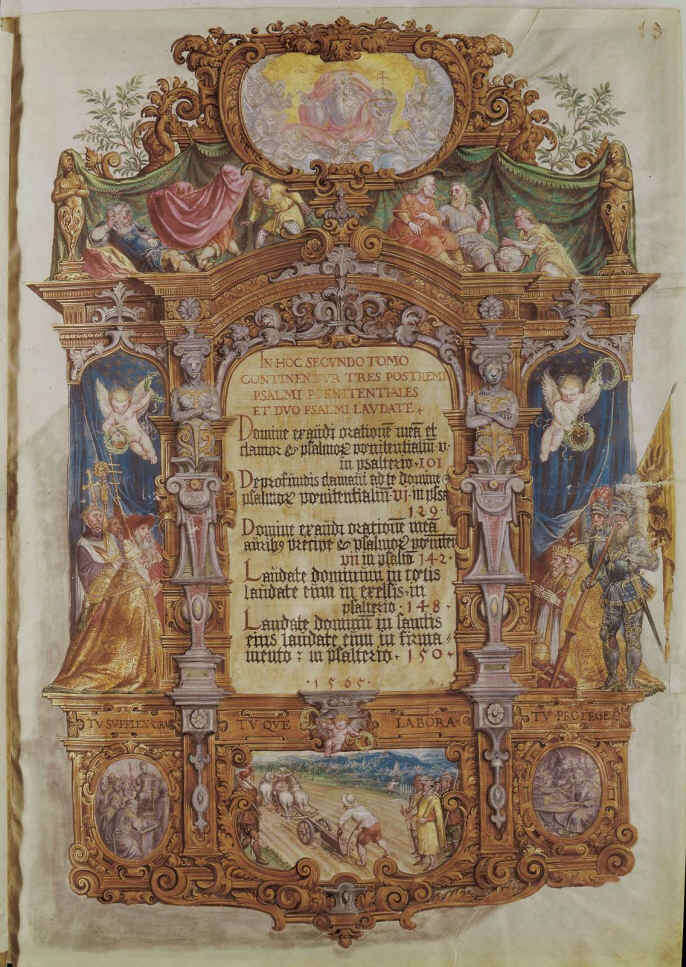 13
IN HOC SECVNDO TOMO
CONTINENTVR TRES POSTREMI
PSALMI POENITENTIALES
ET DVO PSALMI LAVDATE.
Domine exaudi orationē meā et
clamor & psalmorȝ pœnitentialiū v.
in psalterio. 101
De profundis clamaui ad te domine &
psalmorȝ pœnitentialiū vi. in psal.
129.
Domine exaudi orationē meā
auribȝ percipe & psalmorȝ pœniten
vii in psalt. 142.
Laudate dominum in cœlis
laudate eum in excelsis. in
psalterio. 148.
Laudate dominū in sanctis
eius laudate eum in firma=
mento: in psalterio. 150.
.1565.
TV SVPPLEX ORA
TV QVE
LABORA
TV PROTEGE